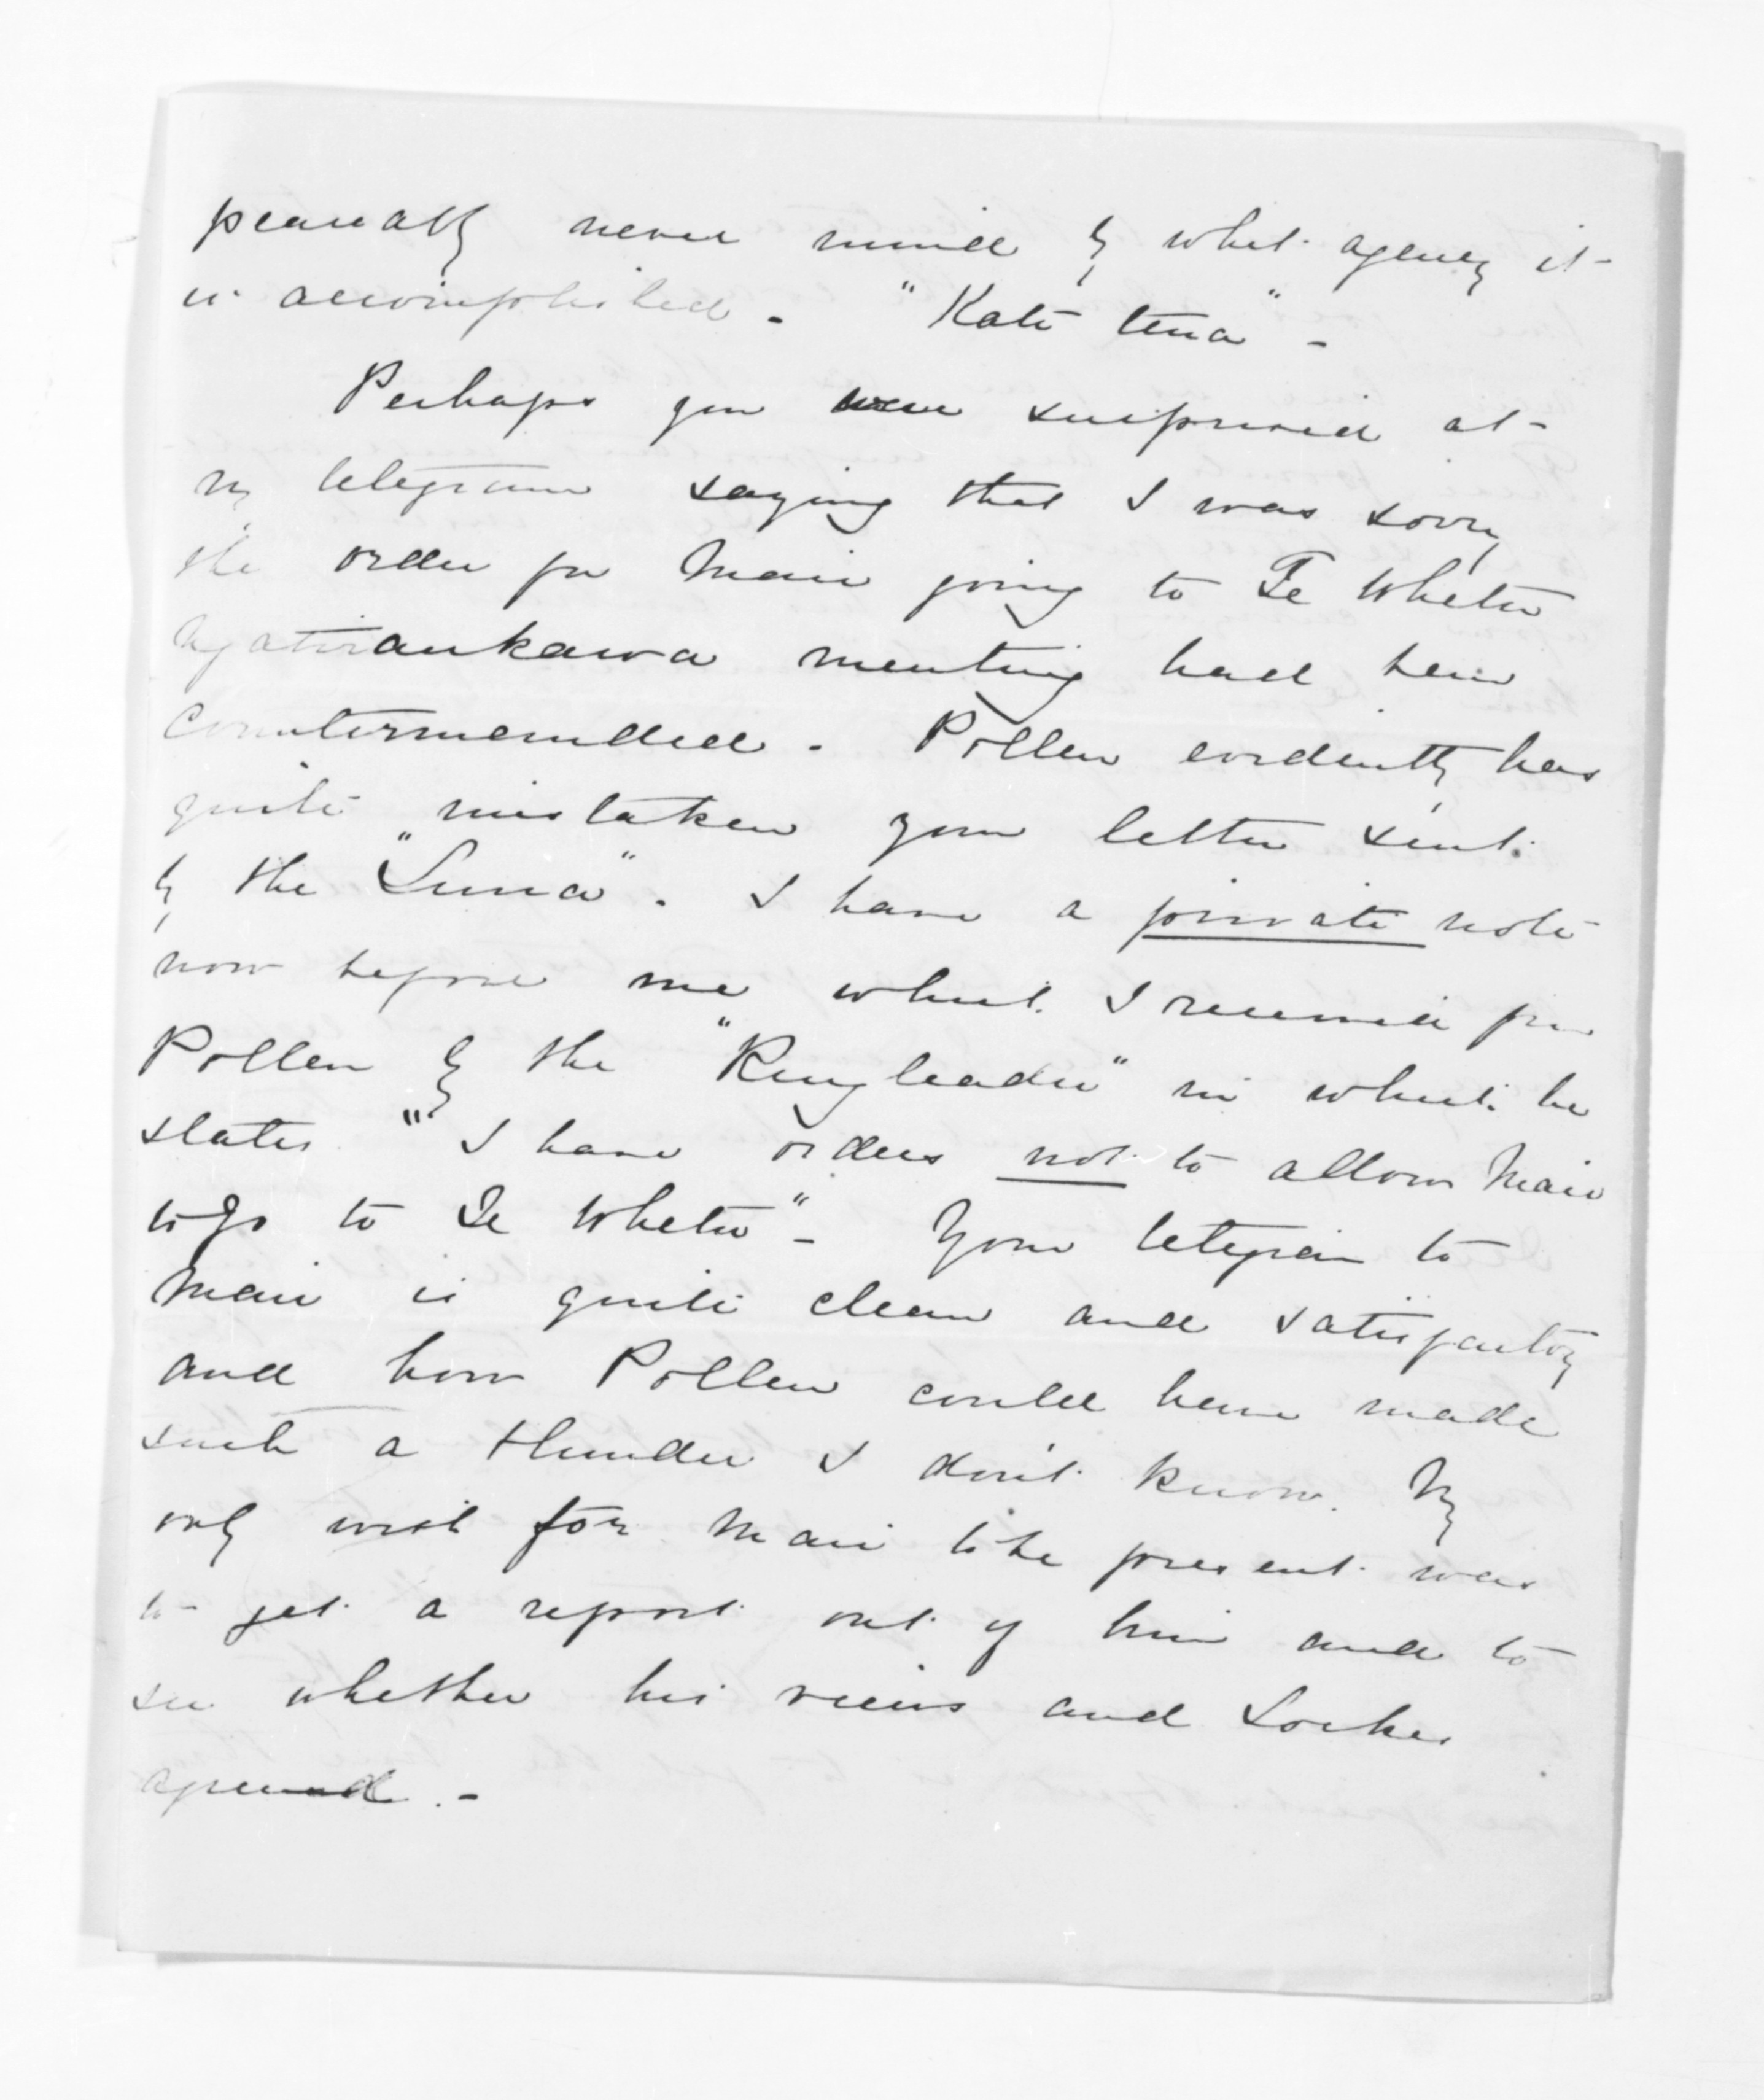 peaceably never mind by what agency it
is accomplished - "Kati tena" -
Perhaps you were surprised at
my telegram saying that I was sorry
the order for Mair going to Te Whetu
Ngatiraukawa meeting had been
countermanded. Pollen evidently has
quite mistaken your letter sent
by the "Luna". I have a private note
now before me which I received from
Pollen by the "Ringleader" in which he
states "I have orders not to allow Mair
to go to Te Whetu" - Your telegram to
Mair is quite clear and satisfactory
and how Pollen could have made
such a blunder I don't know. My
only wish for Mair to be present was
to get a report out of him and to
see whether his views and Lockes
agreed. -